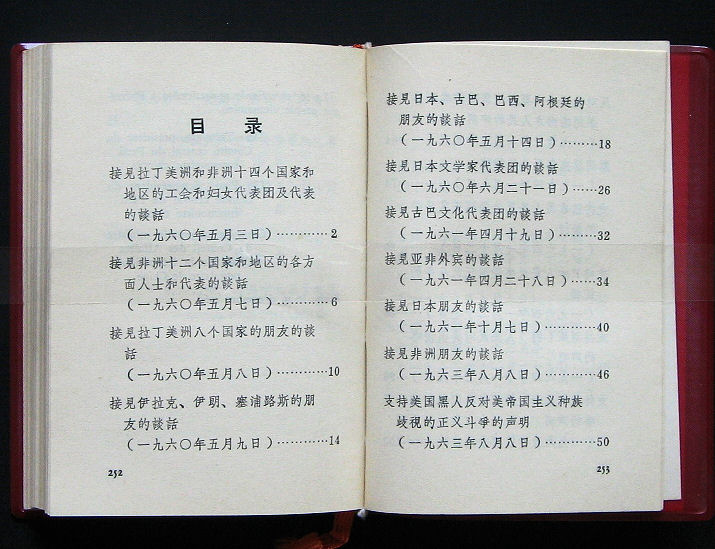 目 录
接見拉丁美洲和非洲十四个国家和
地区的工会和妇女代表团及代表
的談話
(一九六〇年五月三日)…………2
接見非洲十二个国家和地区的各方
面人士和代表的談話
(一九六〇年五月七日)…………6
接見拉丁美洲八个国家的朋友的談
話
(一九六〇年五月八日)…………10
接見伊拉克、伊朗、塞浦路斯的朋
友的談話
(一九六〇年五月九日)…………14
252
接見日本、古巴、巴西、阿根廷的
朋友的談話
(一九六〇年五月十四日)………18
接見日本文学家代表团的談話
(一九六〇年六月二十一日)……26
接見古巴文化代表团的談話
(一九六一年四月十九日)………32
接見亚非外宾的談話
(一九六一年四月二十八日)……34
接見日本朋友的談話
(一九六一年十月七日)…………40
接見非洲朋友的談話
(一九六三年八月八日)…………46
支持美国黑人反对美帝国主义种族
歧視的正义斗爭的声明
(一九六三年八月八日)…………50
253